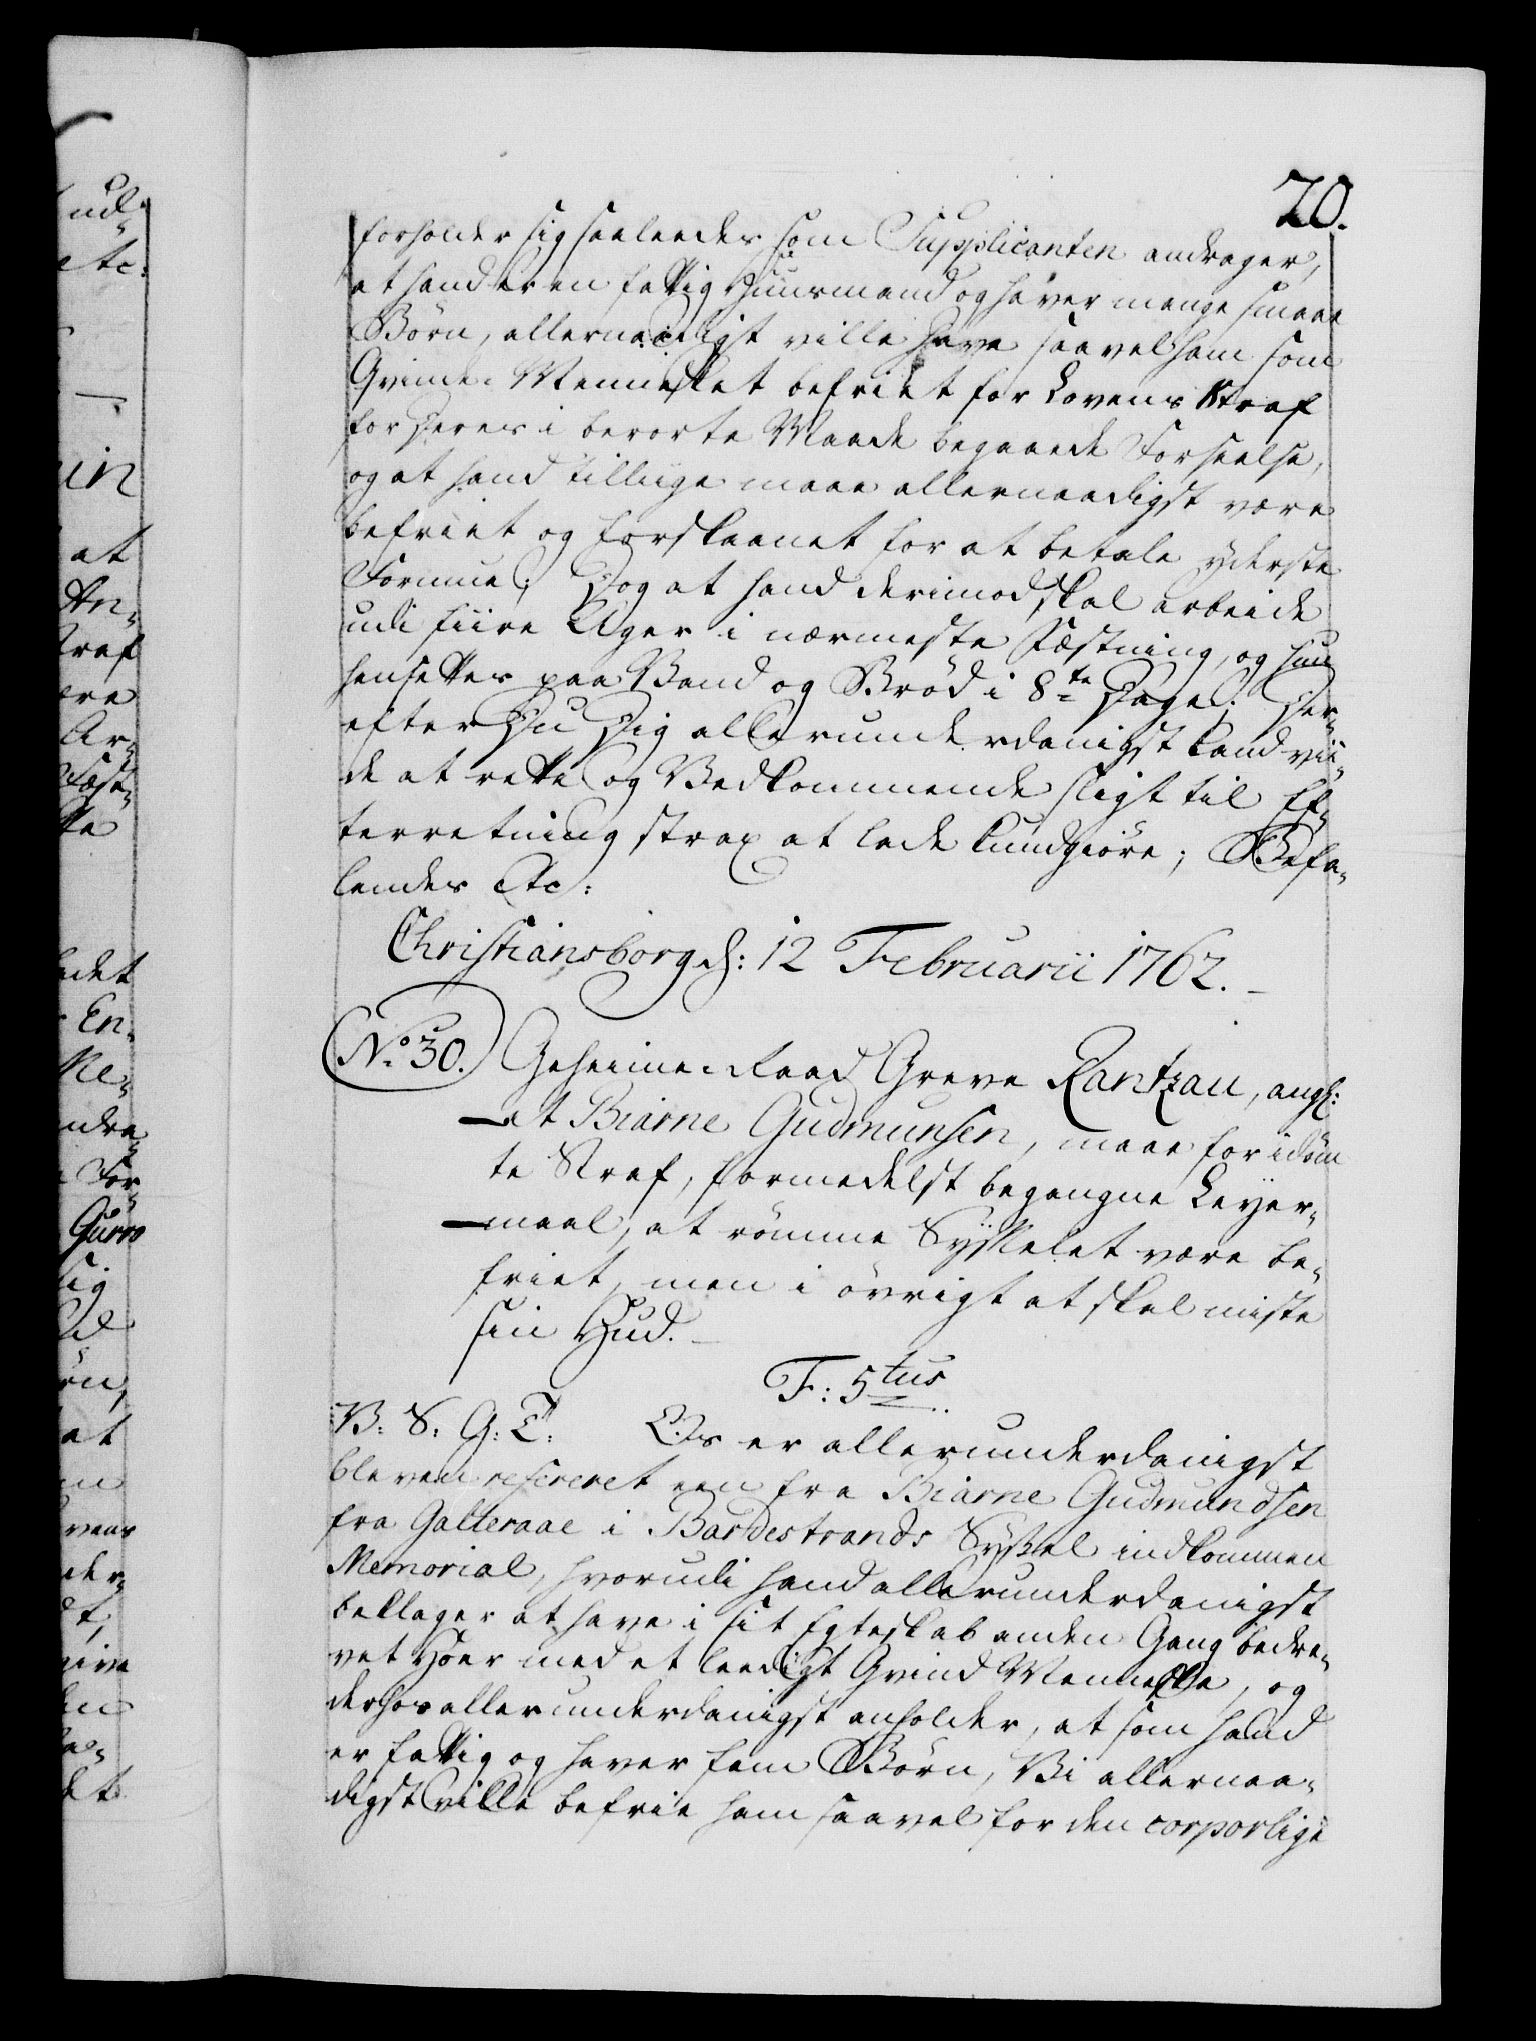 20.
forholder sig saaleedes som Supplicanten andrager,
at hand er en fattig Huusmand og haver mange smaae
Børn, allernaadigst ville have saavel ham som
Qvinde-Mennesket befriet for Lovens Straf
for deres i berørte Maade begaaede Forseelse,
og at hand tillige maae allernaadigst være
befriet og forskaanet for at betale yderste
Formue; Dog at hand derimod skal arbeide
udi fiire Uger i nærmeste Fæstning, og hun
hensettes paa Vand og Brød i 8te Dage; Der-
efter Du Dig allerunderdanigst kand vii-
de at rette og Vedkommende sligt til Ef-
terretning strax at lade kundgiøre; Befa-
lendes etc:
Christiansborg d: 12 Februarii 1762.
No 30. Geheime-Raad Greve Rantzau, angl:
at Biarne Gudmunsen, maae for idøm
te Straf, formedelst begangne Leyer-
maal, at rømme Sysselet være be-
friet, men i øvrigt at skal miste
sin Hud.
F: 5tus
V: S: G: T: Os er allerunderdanigst
bleven refereret een fra Biarne Gudmundsen
fra Galteraae i Bardestrands Syssel indkommen
Memorial, hvorudi hand allerunderdanigst
beklager at have i sit Egteskab anden Gang bedre-
vet Hoer med et leedigt Qvind Menneske, og
derhos allerunderdanigst anholder, at som hand
er fattig og haver fem Børn, Vi allernaa-
digst ville befrie ham saavel for den corporlige